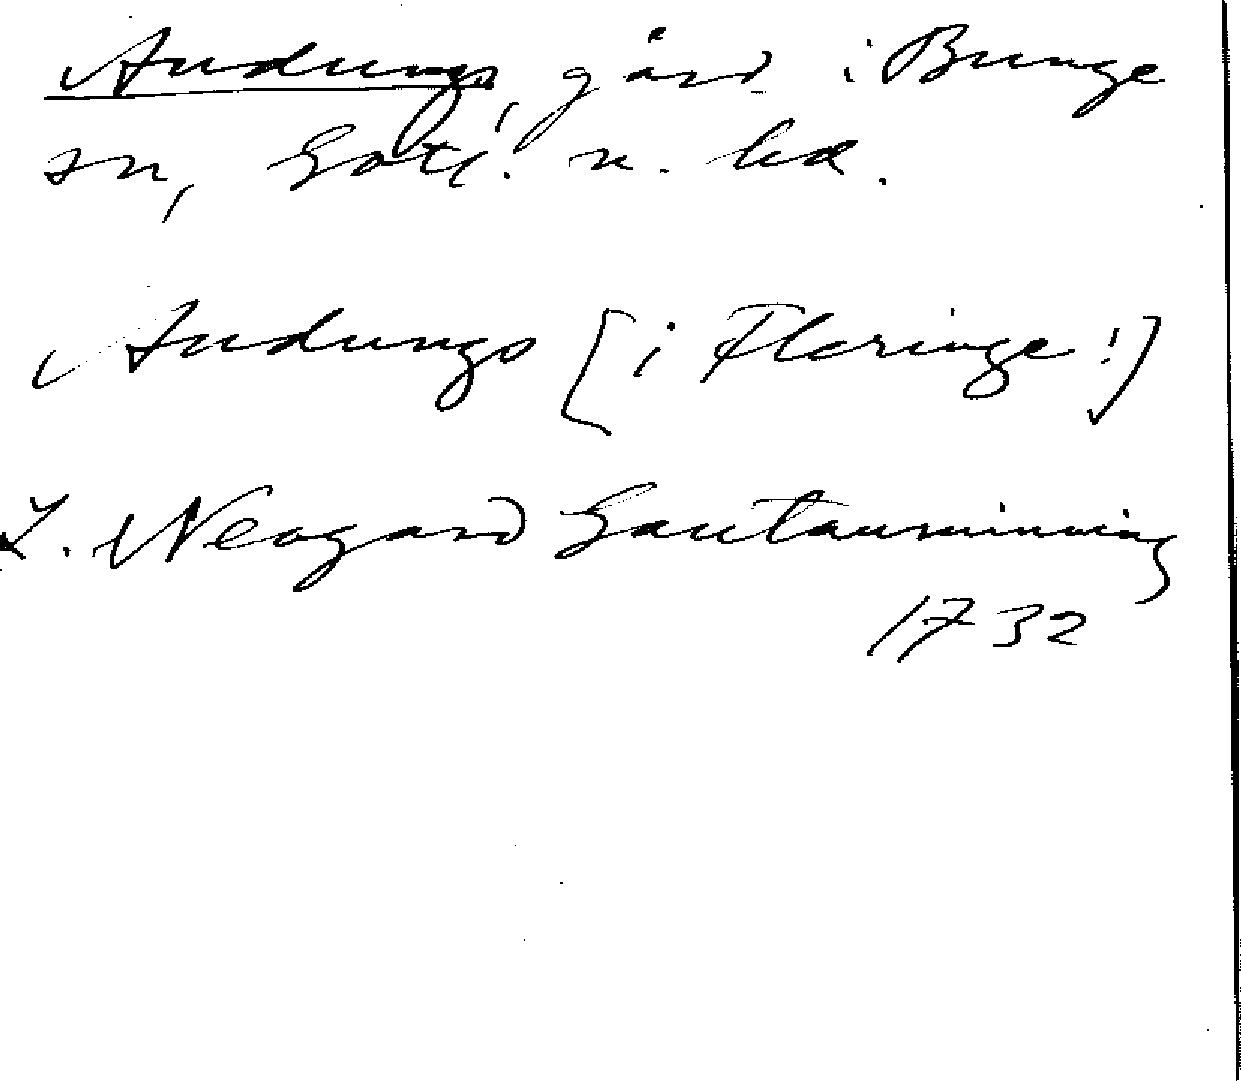 Audungs, gård i Bunge
sn, Gotl. n. hd.
Audungs [i Fleringe!]
J. Neogard Gautauminning
1732